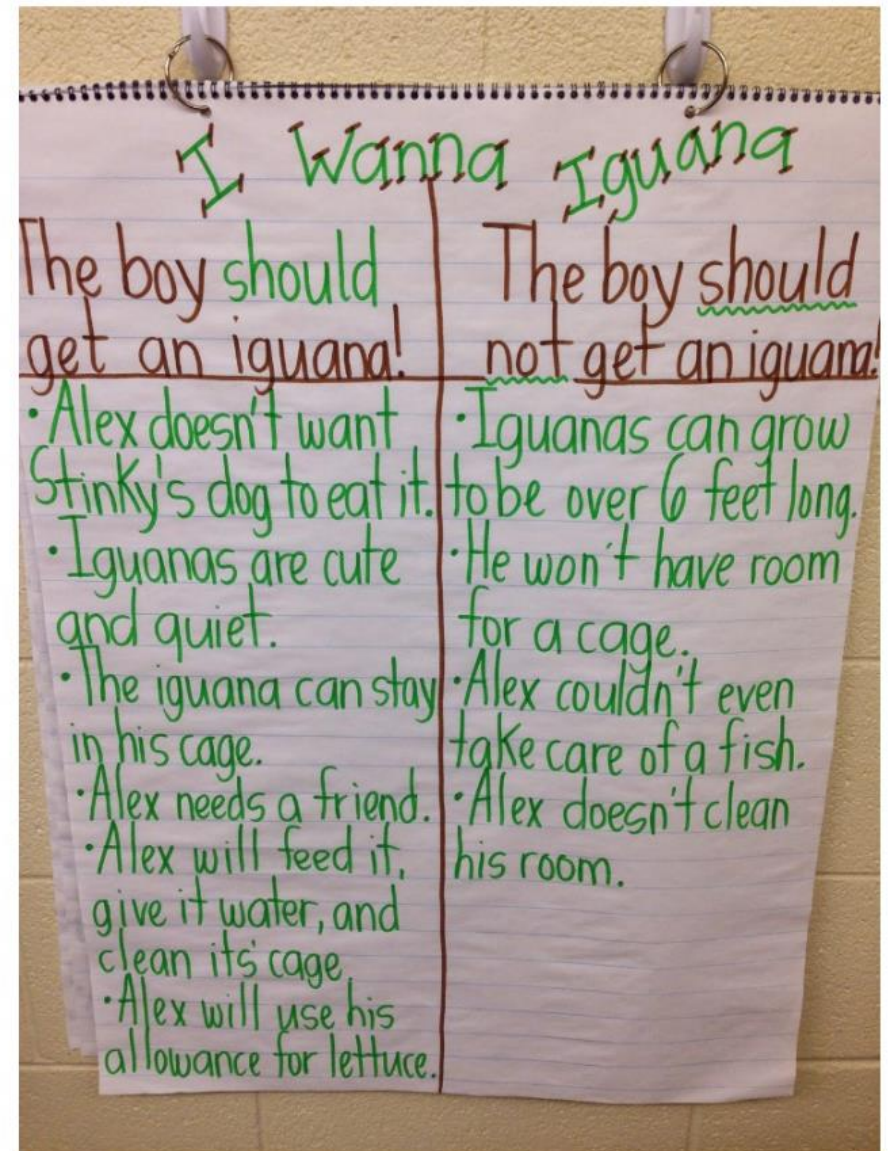 I Wanna Iguana
The boy should
get an iguana!
• Alex doesn't want
Stinky's dog to eat it.
• Iguanas are cute
and quiet.
• The iguana can stay
in his cage.
• Alex needs a friend.
• Alex will feed it,
give it water, and
clean it's cage.
• Alex will use his
allowance for lettuce.
The boy should
not get an iguana!
• Iguanas can grow
to be over 6 feet long.
• He won't have room
for a cage.
• Alex couldn't even
take care of a fish.
• Alex doesn't clean
his room.